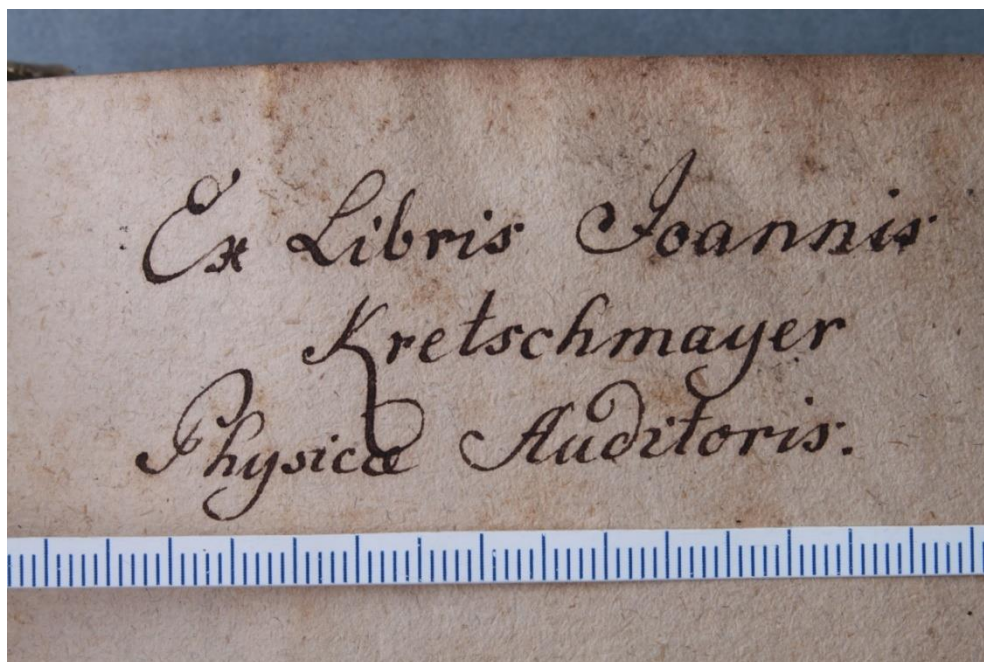 Ex Libris Joannis
Kretschmayer
Physicæ Auditoris.